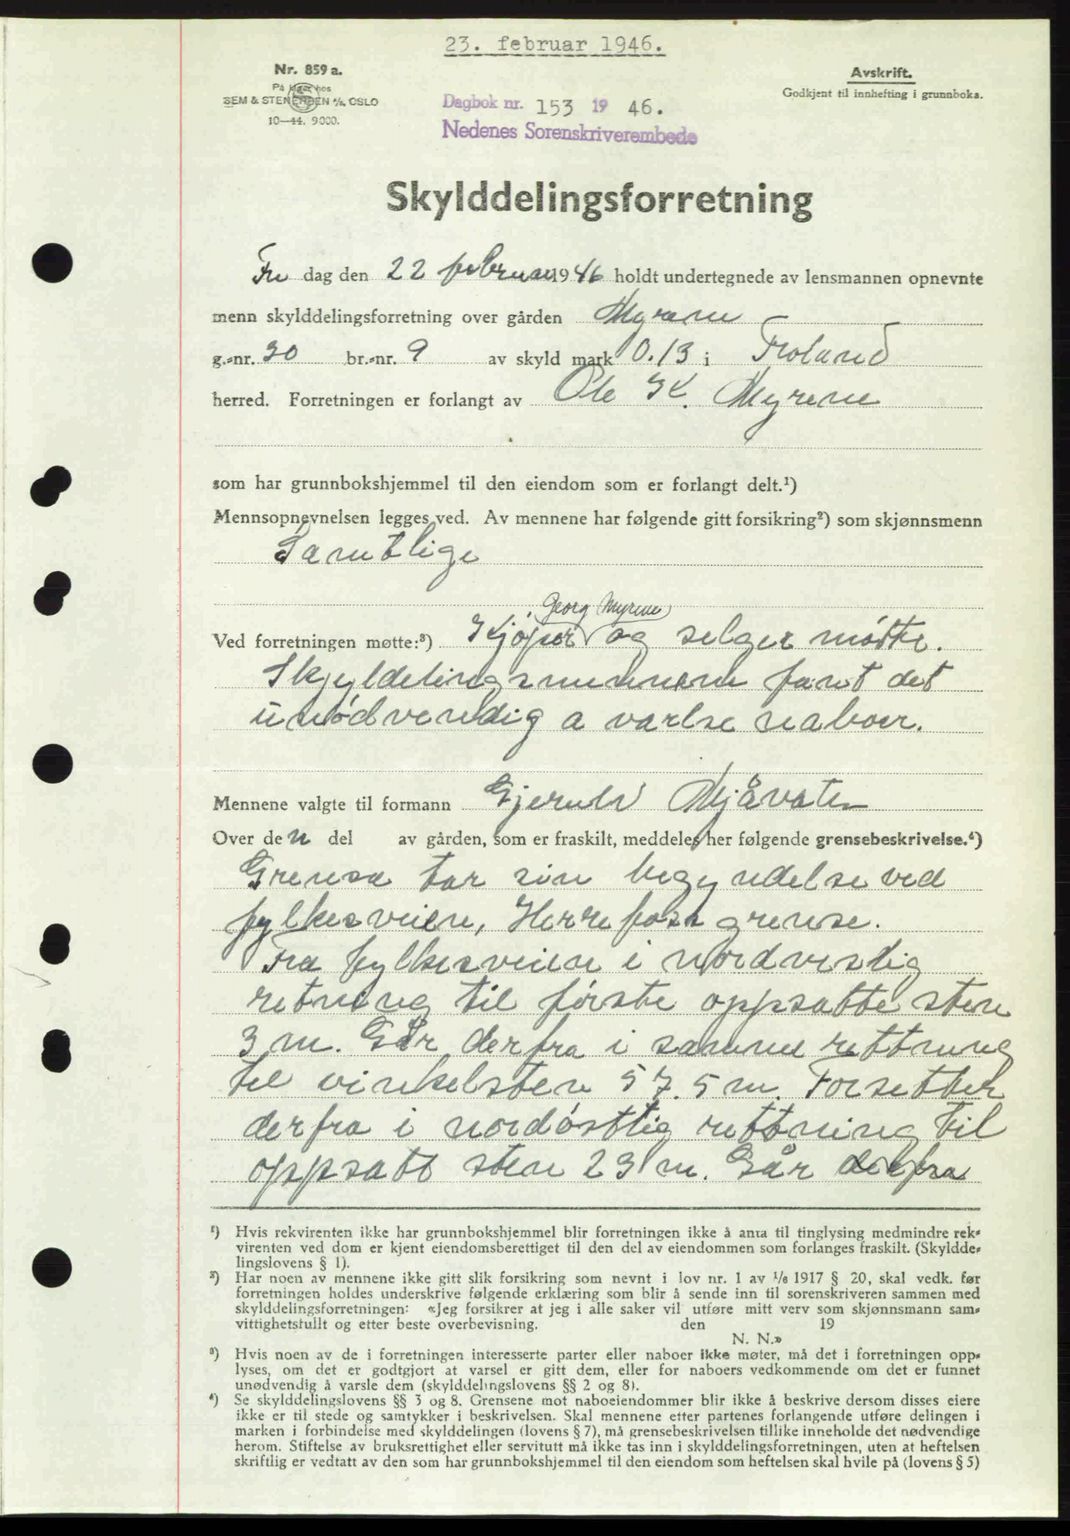 23. februar 1946.
Nr. 859 a.
På lager hos
SEM & STENERSEN A/S, OSLO
10—44. 9000.
Avskrift.
Godkjent til innhefting i grunnboka.
Dagbok nr. 153 19 46.
Nedenes Sorenskriverembede
Skylddelingsforretning
Fre dag den 22 februar 1946 holdt undertegnede av lensmannen opnevnte
menn skylddelingsforretning over gården Myrene
g.-nr. 30 br.-nr. 9 av skyld mark 0.13 i Froland
herred. Forretningen er forlangt av Ole K. Myrene
som har grunnbokshjemmel til den eiendom som er forlangt delt.¹)
Mennsopnevnelsen legges ved. Av mennene har følgende gitt forsikring²) som skjønnsmenn
Samtlige
Georg Myrene
Ved forretningen møtte:³) Kjøper og selger møtte.
Skyldelingsmennene fant det
unødvendig a varlse naboer.
Mennene valgte til formann Gjerulv Mjåvatn
Over den del av gården, som er fraskilt, meddeles her følgende grensebeskrivelse.⁴)
Grensa tar sin begyndelse ved
fylkesveien, Herrefoss grense.
Fra fylkesveien i nordvestlig
retning til første oppsatte sten
3 m. Går derfra i samme rettning
til vinkelsten 57.5 m. Forsetter
derfra i nordøstlig rettning til
oppsatt sten 23 m. Går derfra
¹) Hvis rekvirenten ikke har grunnbokshjemmel blir forretningen ikke å anta til tinglysing medmindre rek-
virenten ved dom er kjent eiendomsberettiget til den del av eiendommen som forlanges fraskilt. (Skyldde-
lingslovens § 1).
²) Har noen av mennene ikke gitt slik forsikring som nevnt i lov nr. 1 av 1/6 1917 § 20, skal vedk. før
forretningen holdes underskrive følgende erklæring som blir å sende inn til sorenskriveren sammen med
skylddelingsforretningen: «Jeg forsikrer at jeg i alle saker vil utføre mitt verv som skjønnsmann sam-
vittighetsfullt og etter beste overbevisning. den 19
N. N.»
³) Hvis noen av de i forretningen interesserte parter eller naboer ikke møter, må det i forretningen opp-
lyses, om det er godtgjort at varsel er gitt dem, eller for naboers vedkommende om det er funnet
unødvendig å varsle dem (skylddelingslovens §§ 2 og 8).
⁴) Se skylddelingslovens §§ 3 og 8. Grensene mot naboeiendommer blir ikke å beskrive dersom disses eiere
ikke er til stede og samtykker i beskrivelsen. Skal mennene etter partenes forlangende utføre delingen i
marken i forbindelse med skylddelingen (lovens § 7), må grensebeskrivelsen tillike inneholde det nødvendige
herom. Stiftelse av bruksrettighet eller servitutt må ikke tas inn i skylddelingsforretningen, uten at heftelsen
skriftlig er vedtatt av den som har grunnbokshjemmel til den eiendom som heftelsen skal hvile på (lovens § 5)